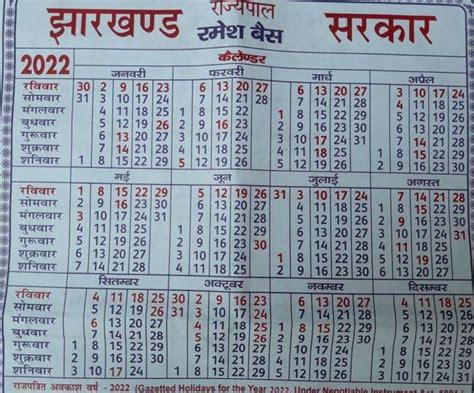 झारखण्ड राज्यपाल रमेश बैस सरकार
2022 कैलेण्डर
जनवरी फरवरी मार्च अप्रैल
रविवार 30 2 9 16 23 6 13 20 27 6 13 20 27 3 10 17 24
सोमवार 31 3 10 17 24 7 14 21 28 7 14 21 28 4 11 18 25
मंगलवार 4 11 18 25 1 8 15 22 1 8 15 22 29 5 12 19 26
बुधवार 5 12 19 26 2 9 16 23 2 9 16 23 30 6 13 20 27
गुरूवार 6 13 20 27 3 10 17 24 3 10 17 24 31 7 14 21 28
शुक्रवार 7 14 21 28 4 11 18 25 4 11 18 25 1 8 15 22 29
शनिवार 1 8 15 22 29 5 12 19 26 5 12 19 26 2 9 16 23 30
मई जून जुलाई अगस्त
रविवार 1 8 15 22 29 5 12 19 26 31 3 10 17 24 7 14 21 28
सोमवार 2 9 16 23 30 6 13 20 27 4 11 18 25 1 8 15 22 29
मंगलवार 3 10 17 24 31 7 14 21 28 5 12 19 26 2 9 16 23 30
बुधवार 4 11 18 25 1 8 15 22 29 6 13 20 27 3 10 17 24 31
गुरूवार 5 12 19 26 2 9 16 23 30 7 14 21 28 4 11 18 25
शुक्रवार 6 13 20 27 3 10 17 24 1 8 15 22 29 5 12 19 26
शनिवार 7 14 21 28 4 11 18 25 2 9 16 23 30 6 13 20 27
सितम्बर अक्टूबर नवम्बर दिसम्बर
रविवार 4 11 18 25 30 2 9 16 23 6 13 20 27 4 11 18 25
सोमवार 5 12 19 26 31 3 10 17 24 7 14 21 28 5 12 19 26
मंगलवार 6 13 20 27 4 11 18 25 1 8 15 22 29 6 13 20 27
बुधवार 7 14 21 28 5 12 19 26 2 9 16 23 30 7 14 21 28
गुरूवार 1 8 15 22 29 6 13 20 27 3 10 17 24 1 8 15 22 29
शुक्रवार 2 9 16 23 30 7 14 21 28 4 11 18 25 2 9 16 23 30
शनिवार 3 10 17 24 1 8 15 22 29 5 12 19 26 3 10 17 24 31
राजपत्रित अवकाश वर्ष - 2022 (Gazetted Holidays for the Year 2022, Under Negotiable Instrument Act, 1881